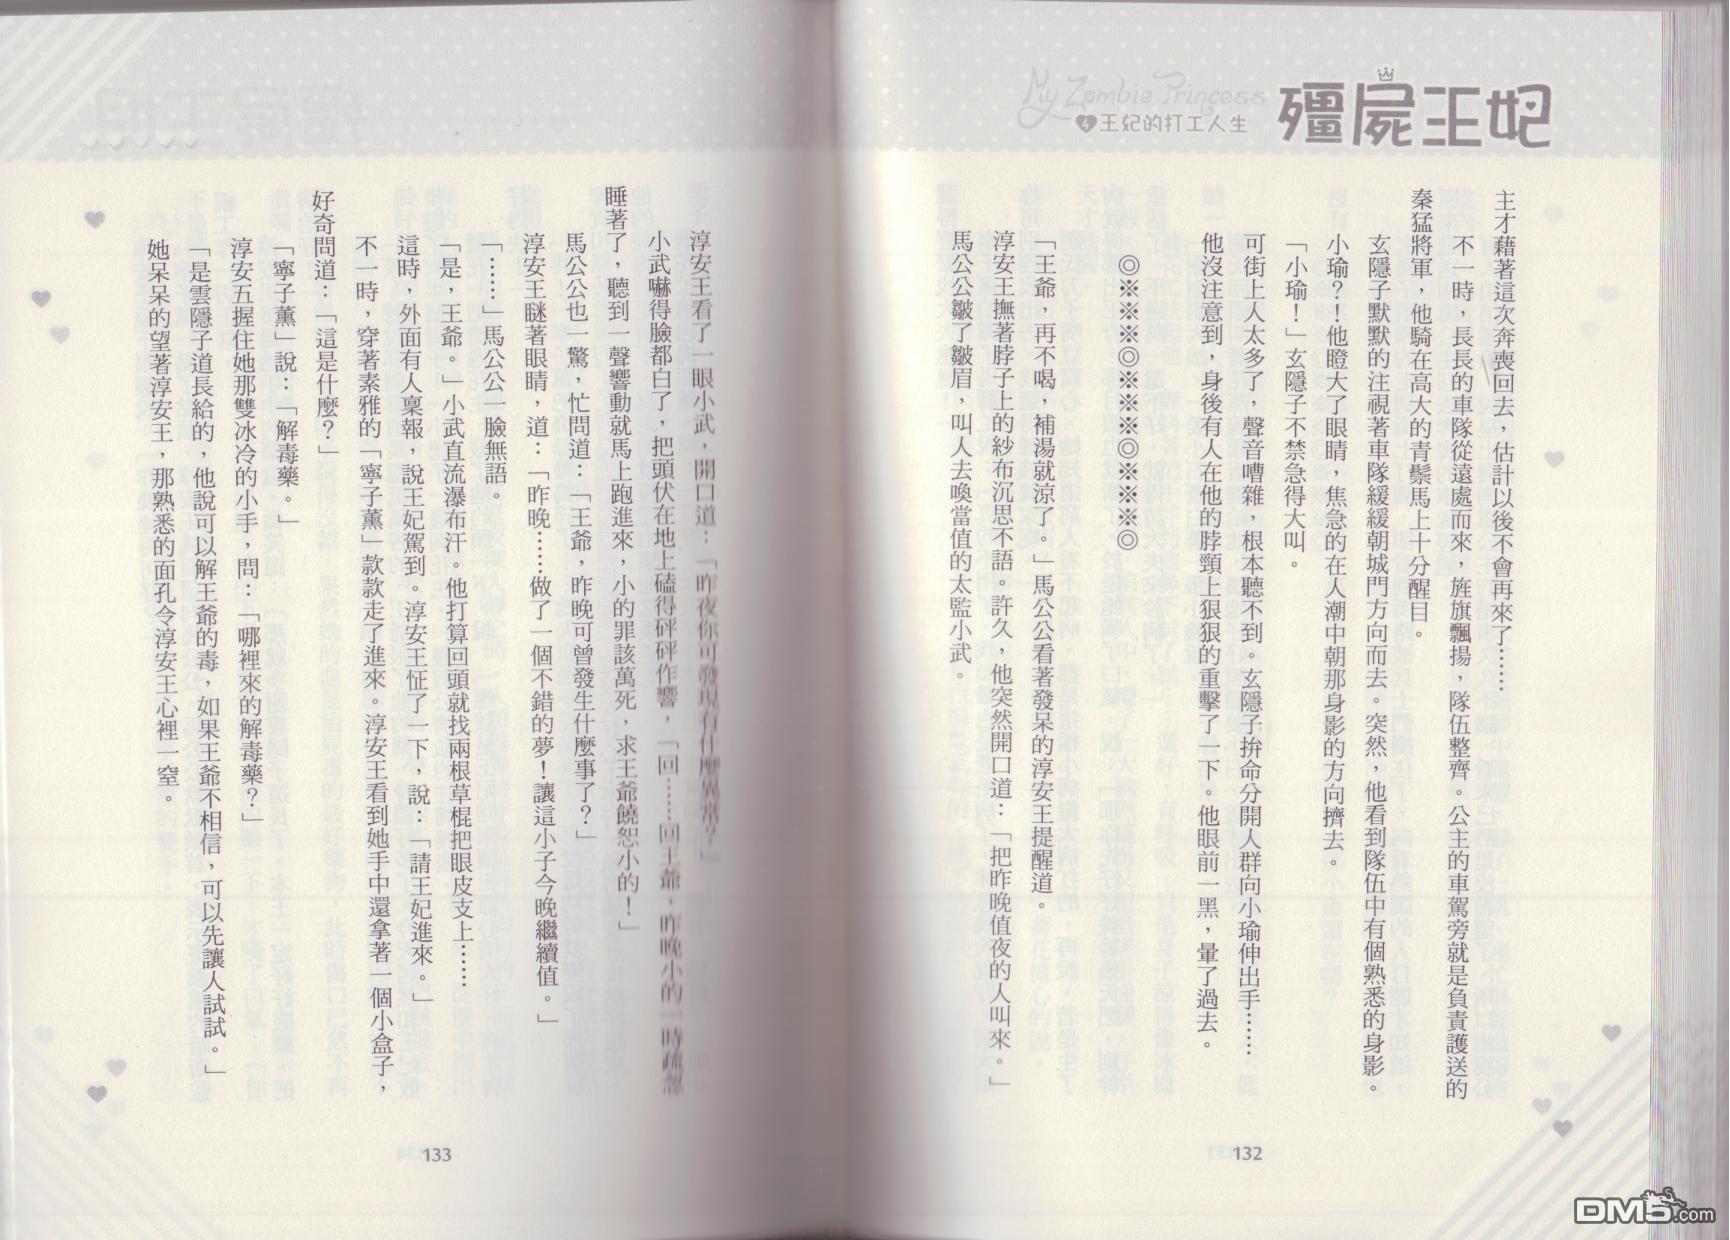 My Zombie Princess
殭屍王妃
4 王妃的打工人生
主才藉著這次奔喪回去，估計以後不會再來了……
不一時，長長的車隊從遠處而來，旌旗飄揚，隊伍整齊。公主的車駕旁就是負責護送的
秦猛將軍，他騎在高大的青鬃馬上十分醒目。
玄隱子默默的注視著車隊緩緩朝城門方向而去。突然，他看到隊伍中有個熟悉的身影。
小瑜？！他瞪大了眼睛，焦急的在人潮中朝那身影的方向擠去。
「小瑜！」玄隱子不禁急得大叫。
可街上人太多了，聲音嘈雜，根本聽不到。玄隱子拚命分開人群向小瑜伸出手……
他沒注意到，身後有人在他的脖頸上狠狠的重擊了一下。他眼前一黑，暈了過去。
◎※※※◎※※※◎※※※◎
「王爺，再不喝，補湯就涼了。」馬公公看著發呆的淳安王提醒道。
淳安王撫著脖子上的紗布沉思不語。許久，他突然開口道：「把昨晚值夜的人叫來。」
馬公公皺了皺眉，叫人去喚當值的太監小武。
132
淳安王看了一眼小武，開口道：「昨夜你可發現有什麼異常？」
小武嚇得臉都白了，把頭伏在地上磕得砰砰作響，「回……回王爺，昨晚小的一時疏忽
睡著了，聽到一聲響動就馬上跑進來，小的罪該萬死，求王爺饒恕小的！」
馬公公也一驚，忙問道：「王爺，昨晚可曾發生什麼事了？」
淳安王瞇著眼睛，道：「昨晚……做了一個不錯的夢！讓這小子今晚繼續值。」
「……」馬公公一臉無語。
「是，王爺。」小武直流瀑布汗。他打算回頭就找兩根草棍把眼皮支上……
這時，外面有人稟報，說王妃駕到。淳安王怔了一下，說：「請王妃進來。」
不一時，穿著素雅的「寧子薰」款款走了進來。淳安王看到她手中還拿著一個小盒子，
好奇問道：「這是什麼？」
「寧子薰」說：「解毒藥。」
淳安五握住她那雙冰冷的小手，問：「哪裡來的解毒藥？」
「是雲隱子道長給的，他說可以解王爺的毒，如果王爺不相信，可以先讓人試試。」
她呆呆的望著淳安王，那熟悉的面孔令淳安王心裡一窒。
133
DM5.com